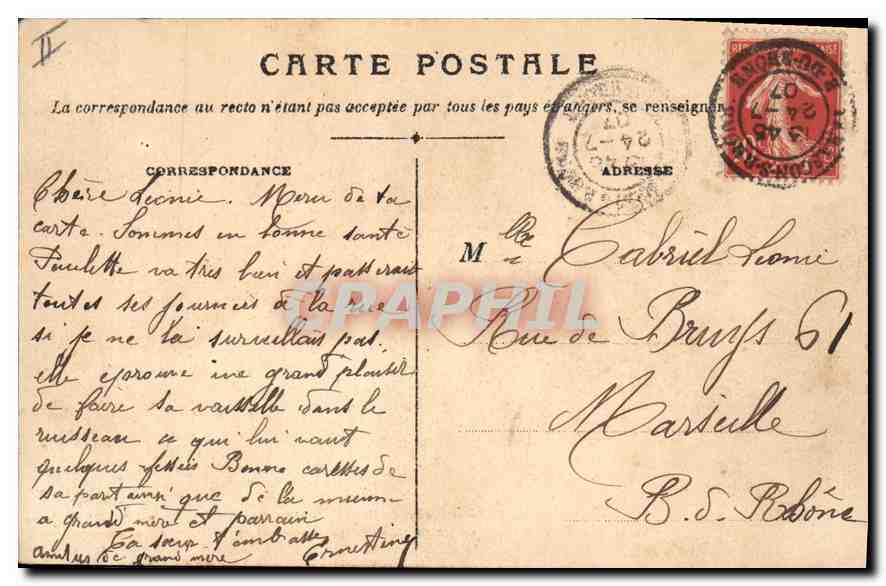 II
CARTE POSTALE
La correspondance au recto n'étant pas acceptée par tous les pays étrangers, se renseigner
CORRESPONDANCE
ADRESSE
Chère Leonie. Merci de ta
carte. Sommes en bonne santé
Paulette va très bien et passerait
toutes ses journées à la rue
si je ne la surveillais pas.
elle eprouve une grand plaisir
de faire sa vaisselle dans le
ruisseau ce qui lui vaut
quelques fessées Bonne caresses de
sa part ainsi que de la mienne
a grand mère et parrain
Ta sœur t'embrasse
de grand mère Ernestine
Mlle Gabriel Leonie
Rue de Bruys 61
Marseille
B. d. Rhône
CPAPHIL
24 - 7
07